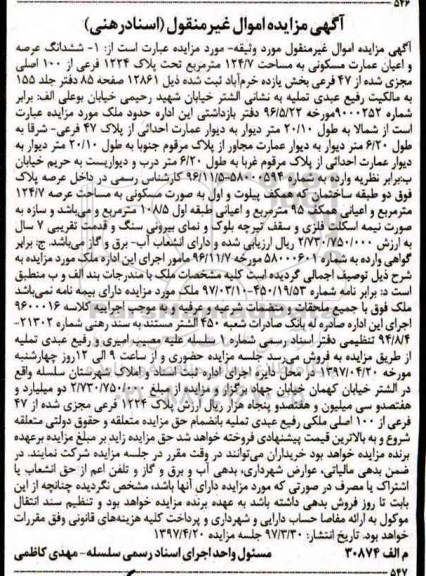 ۵۴۶
آگهی مزایده اموال غیرمنقول (اسنادرهنی)
آگهی مزایده اموال غیرمنقول مورد وثیقه- مورد مزایده عبارت است از: ۱- ششدانگ عرصه
و اعیان عمارت مسکونی به مساحت ۱۲۴/۷ مترمربع تحت پلاک ۱۲۲۴ فرعی از ۱۰۰ اصلی
مجزی شده از ۴۷ فرعی بخش یازده خرم‌آباد ثبت شده ذیل ۱۲۸۶۱ صفحه ۸۵ دفتر جلد ۱۵۵
به مالکیت رفیع عبدی تملیه به نشانی الشتر خیابان شهید رحیمی خیابان بوعلی الف: برابر
شماره ۹۰۰۰۲۵۲مورخه ۹۶/۵/۲۲ دفتر بازداشتی این اداره حدود ملک مورد مزایده عبارت
است از شمالا به طول ۲۰/۱۰ متر دیوار به دیوار عمارت احداثی از پلاک ۴۷ فرعی- شرقا به
طول ۶/۲۰ متر دیوار به دیوار عمارت مجاور از پلاک مرقوم جنوبا به طول ۲۰/۱۰ متر دیوار به
دیوار عمارت احداثی از پلاک مرقوم غربا به طول ۶/۲۰ متر درب و دیواریست به حریم خیابان
ب:برابر نظریه وارده به شماره ۵۸۰۰۰۵۹۴-۹۶/۱۱/۵ کارشناس رسمی در داخل عرصه پلاک
فوق دو طبقه ساختمان که همکف پیلوت و اول به صورت مسکونی به مساحت عرصه ۱۲۴/۷
مترمربع و اعیانی همکف ۹۵ مترمربع و اعیانی طبقه اول ۱۰۸/۵ مترمربع و می‌باشد و سازه به
صورت نیمه اسکلت فلزی و سقف تیرچه بلوک و نمای بیرونی سنگ و قدمت تقریبی ۷ سال
به ارزش ۲/۷۳۰/۷۵۰/۰۰۰ ریال ارزیابی شده و دارای انشعاب آب- برق و گاز می‌باشد. ج: برابر
گواهی وارده به شماره ۵۸۰۰۰۶۰۱ مورخه ۹۶/۱۱/۷ مامور اجرای این اداره ملک مورد مزایده به
شرح ذیل توصیف اجمالی گردیده است کلیه مشخصات ملک با مندرجات بند الف و ب منطبق
است د: برابر نامه شماره ۴۵۰/۱۹/۵۳-۹۷/۰۳/۱۱ ملک مورد مزایده دارای بیمه نامه نمی‌باشد
ملک فوق با جمیع ملحقات و متضمات شرعیه و عرفیه و به موجب اجراییه کلاسه ۹۶۰۰۰۱۶
اجرای این اداره صادره له بانک صادرات شعبه ۴۵۰ الشتر مستند به سند رهنی شماره ۲۱۳۰۲-
۹۴/۸/۴ تنظیمی دفتر اسناد رسمی شماره ۱ سلسله علیه مصیب امیری و رفیع عبدی تملیه
از طریق مزایده به فروش می‌رسد جلسه مزایده حضوری و از ساعت ۹ الی ۱۲ روز چهارشنبه
مورخه ۱۳۹۷/۰۴/۲۰ در محل شعبه اجرای اداره ثبت اسناد و املاک شهرستان سلسله واقع
در الشتر خیابان کهمان خیابان جهاد برگزار و مزایده از مبلغ ۲/۷۳۰/۷۵۰/۰۰۰ دو میلیارد و
هفتصدو سی میلیون و هفتصدو پنجاه هزار ریال ارزش پلاک ۱۲۲۴ فرعی مجزی شده از ۴۷
فرعی از ۱۰۰ اصلی ملکی رفیع عبدی تملیه بانضمام حق مزایده متعلقه و حقوق دولتی متعلقه
شروع و به بالاترین قیمت پیشنهادی فروخته خواهد شد حق مزایده زاید بر مبلغ مزایده برعهده
برنده مزایده خواهد بود خریداران می‌توانند در وقت مقرر در جلسه مزایده شرکت نمایند. در
ضمن بدهی مالیاتی، عوارض شهرداری، بدهی آب و برق و گاز و تلفن اعم از حق انشعاب یا
اشتراک یا مصرف در صورتی که مورد مزایده دارای آنها باشد، مشخص نگردیده چنانچه از این
بابت تا روز فروش بدهی داشته باشد به عهده برنده مزایده خواهد بود و تنظیم سند انتقال
موکول به ارائه مفاصا حساب دارایی و شهرداری و پرداخت کلیه هزینه‌های قانونی وفق مقررات
خواهد بود. تاریخ انتشار: ۹۷/۳/۳۰ جلسه مزایده ۱۳۹۷/۴/۲۰
م الف ۳۰۸۷۴ مسئول واحد اجرای اسناد رسمی سلسله- مهدی کاظمی
۵۴۷